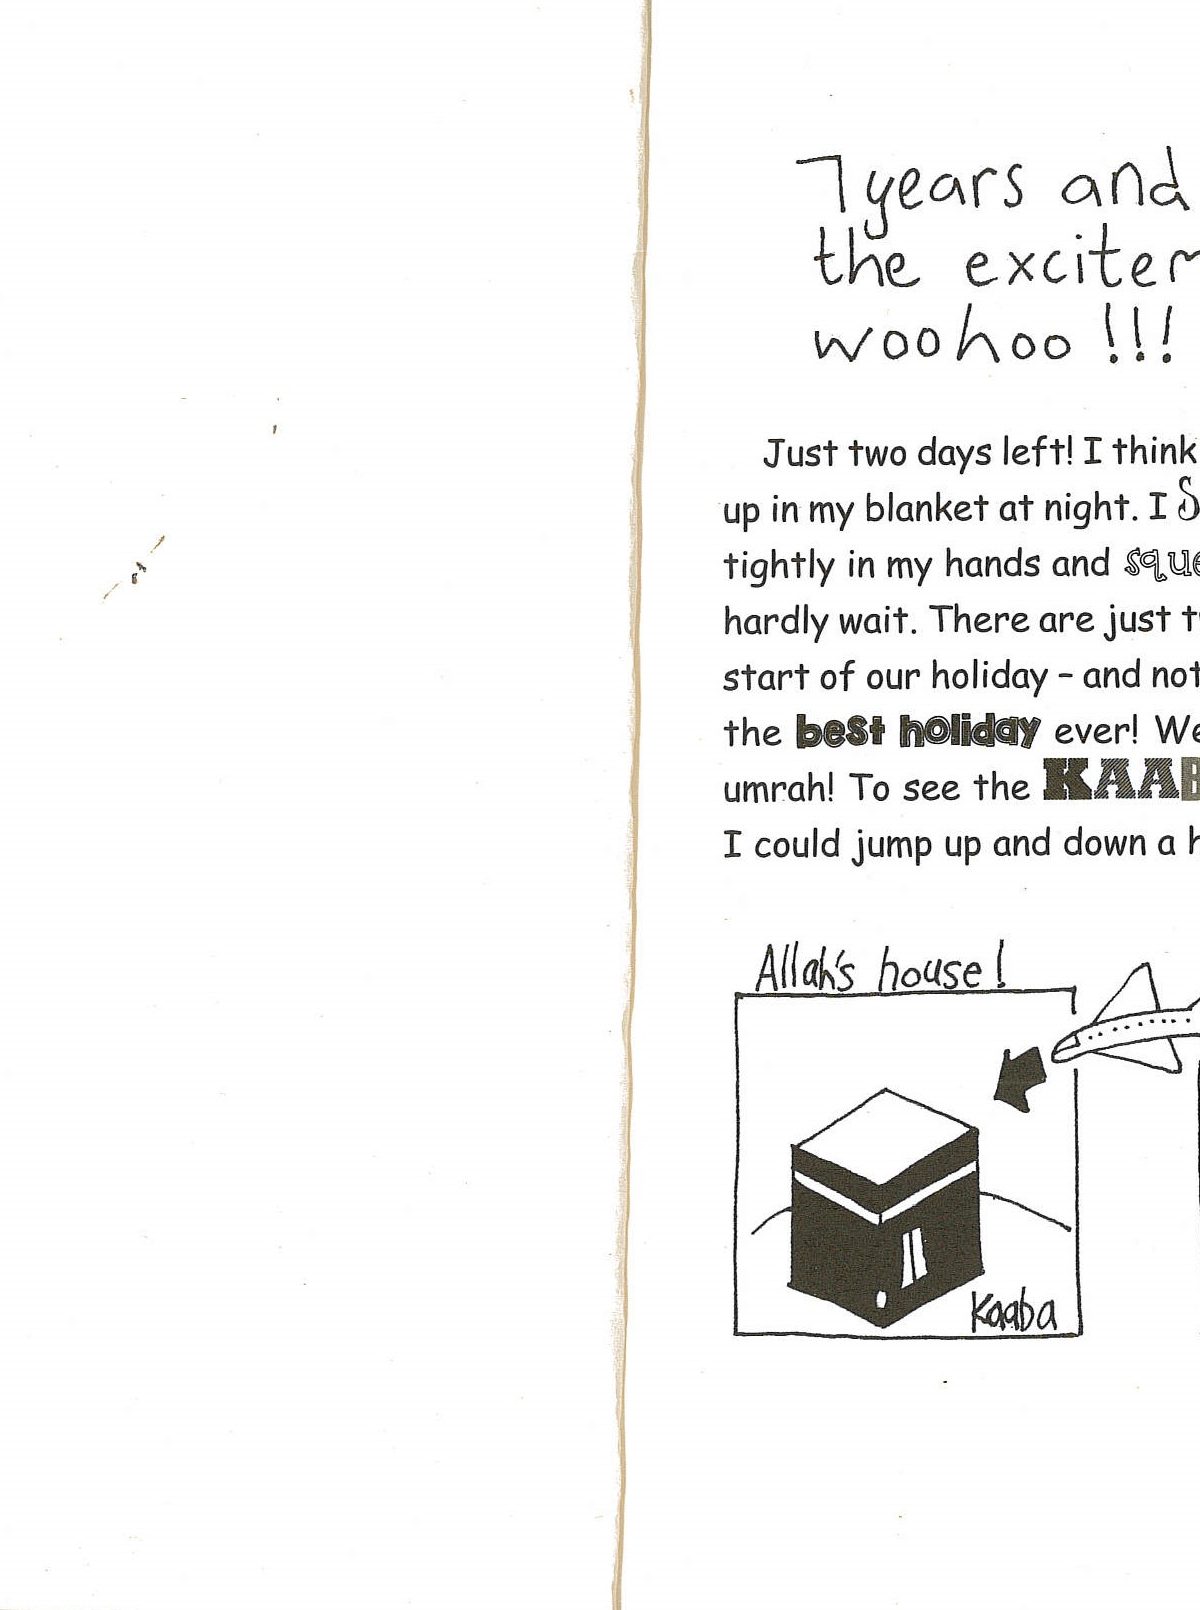 7 years and
the excitem
woohoo!!!
Just two days left! I think
up in my blanket at night. I
tightly in my hands and
hardly wait. There are just
start of our holiday – and not
the best holiday ever! We
umrah! To see the KAAB
I could jump up and down a
Allah's house!
Kaaba